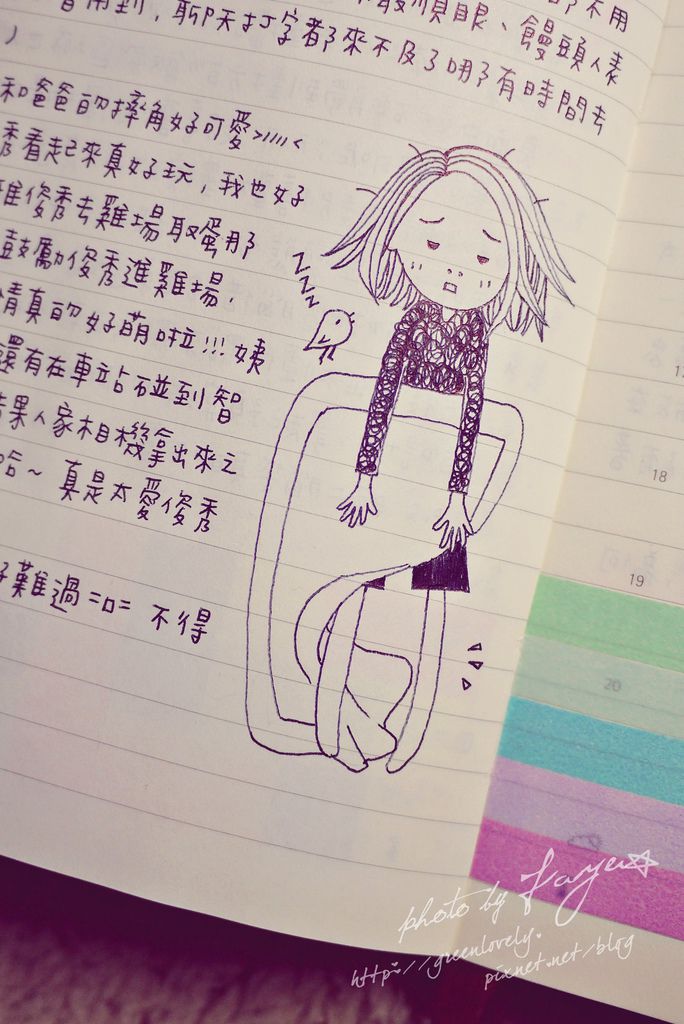 聊天打字都來不及了哪有時間去
和爸爸的摔角好可愛>/////<
秀看起來真好玩，我也好
俊秀去雞場取蛋那
鼓勵俊秀進雞場，
情真的好萌啦!!!姨
還有在車站碰到智
結果人家相機拿出來之
哈~ 真是太愛俊秀
好難過=口= 不得
眼、饅頭人表
不用
zzzz
18
19
20
photo by Faye☆
http://greenlovely.
pixnet.net/blog